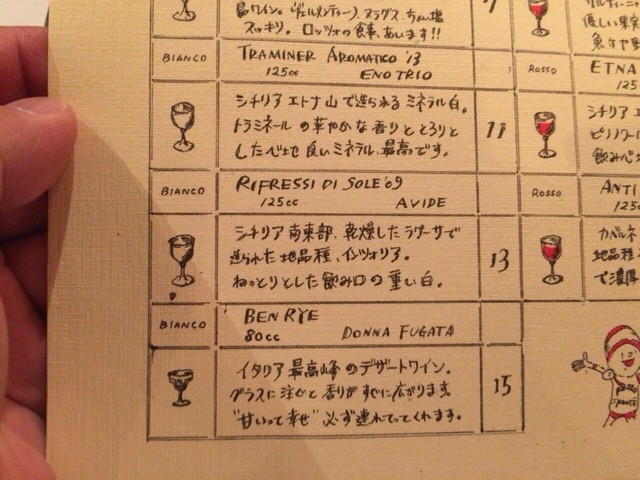 島ワイン。(ヴェルメンティーノ、
スッキリ。ロッツォの食事、あいます!!
BIANCO
TRAMINER AROMATICO '13
125cc ENOTRIO
シチリア エトナ山で造られるミネラル白。
トラミネールの華やかな香りととろりと
した 良いミネラル、最高です。
11
BIANCO
RIFRESSI DI SOLE '09
125cc AVIDE
シチリア南東部、乾燥したラグーサで
造られた地品種、インツォリア。
ねっとりとした飲み口の重い白。
13
BIANCO
BEN RYE
80cc DONNA FUGATA
イタリア最高峰のデザートワイン。
グラスに注ぐと香りがすぐに広がります。
"甘いって幸せ" 必ず連れてってくれます。
15
優しい果実
ROSSO
ETNA
125
シチリア エ
ピノノワー
飲み心地
ROSSO
ANTI
125c
カベルネ
地品種
で濃厚